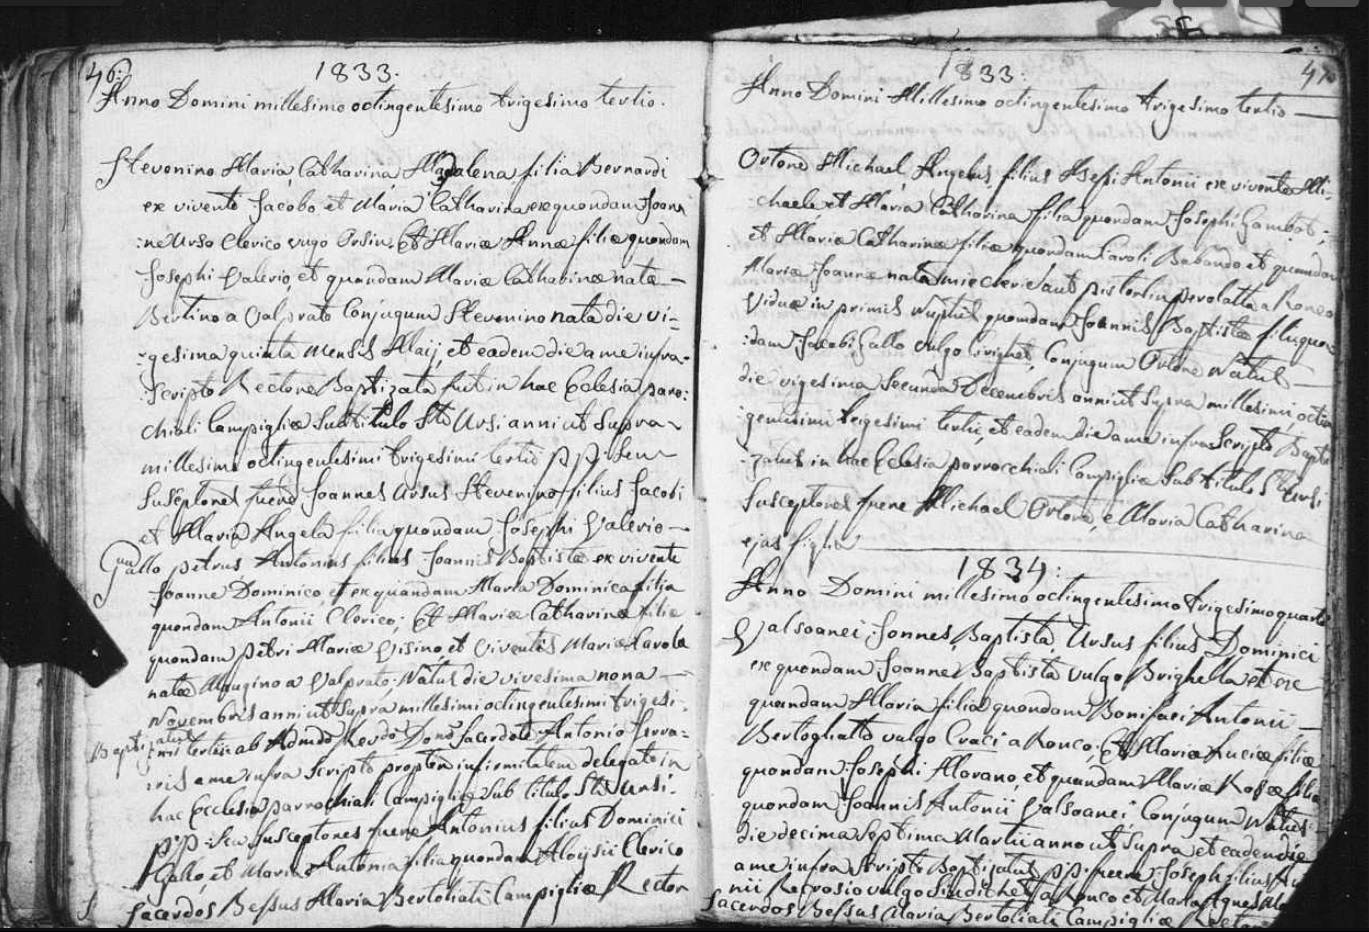 46:
1833.
Anno Domini millesimo octingentesimo trigesimo tertio.
Stevenino Maria Catharina Magdalena filia Bernardi
ex vivente Jacobo et Maria Catharina ex quondam Joan
:ne Urso Clerico vugo Orsin Et Mariæ Annæ filiæ quondam
Josephi Valerio et quondam Mariæ Catharinæ natæ
Bertino a Valprato Conjugum Stevenino nata die vi=
:gesima quinta mensis Maij et eadem die a me infra=
:scripto Rectore Baptizata fuit in hac Ecclesia paro:
chiali Campigliæ Sub titulo Sti Ursi anni ut Supra
millesimi octingentesimi trigesimi tertii pp. seu
Susceptores fuere Joannes Ursus Stevenino filius Jacobi
et Maria Angela filia quondam Josephi Valerio
Gallo petrus Antonius filius Joannis Baptistæ ex vivente
Joanne Dominico et ex quondam Maria Dominica filia
quondam Antonii Clerico; Et Mariæ Catharinæ filiæ
quondam petri Mariæ et viventis Mariæ
natæ a Valprato Natus die vivesima nona
Novembris anni ut Supra millesimi octingentesimi trigesi:
Bapti:zatus :mi tertii ab Admdo Revdo Dono Sacerdote Antonio Ferra=
:ris a me infra Scripto propter infirmitatem delegato in
hac Ecclesia parrochiali Campigliæ Sub titulo Sti Ursi.
p:p: Seu Susceptores fuere Antonius filius Dominici
Gallo, et Maria Antonia filia quondam Aloysii Clerico
Sacerdos Bessus Maria Bertoliati Campigliæ Rector
1833:
47
Anno Domini Millesimo octingentesimo trigesimo tertio
Ortone Michael Angelus filius Antonii ex vivente Mi:
:chaele et Maria Catharina filia quondam Josephi Gambot;
et Mariæ Catharinæ filiæ quondam Caroli et quondam
Mariæ Joannæ natæ a Ronco
Viduæ in primis nuptiis quondam Joannis Baptistæ fili quon
:dam Jacobi Gallo vulgo Conjugum Ortone Natus
die vigesima Secunda Decembris anni ut Supra millesimi octin
:gentesimi trigesimi tertii, et eadem die a me infra Scripto Bapti
:zatus in hac Ecclesia parrocchiali Campigliæ Sub titulo S Ursi
Susceptores fuere Michael Ortone e Maria Catharina
ejus figlia
1834:
Anno Domini millesimo octingentesimo trigesimo quarto
Valsoanei Jonnes Baptista Ursus filius Dominici
ex quondam Joanne Baptista vulgo Brighella et ex
quondam Maria filia quondam Bonifaci Antonii
Bertoglatto vulgo Craci a Ronco; Et Mariæ Luciæ filiæ
quondam Josephi Marano, et quondam Mariæ Rosæ filiæ
quondam Joannis Antonii Valsoanei Conjugum Natus
die decima Septima Martii anno ut Supra et eadem die
a me infra Scripto Baptizatus p:p: fuere Joseph filius
nii vulgo a Ronco et Maria Agnes
Sacerdos Bessus Maria Bertoliati Campigliæ Rector